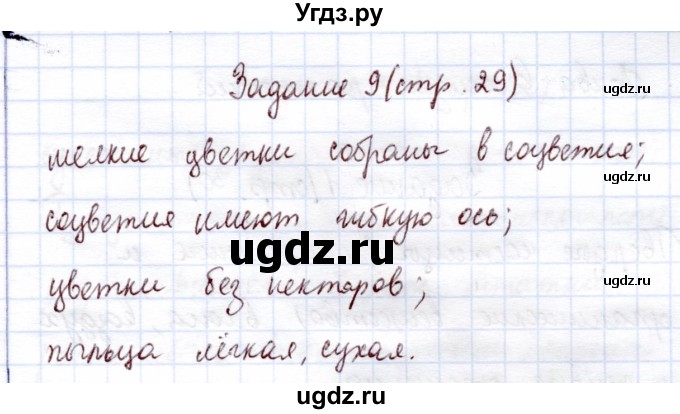 Угдз.ру
Задание 9 (стр. 29)
мелкие цветки собраны в соцветия;
соцветия имеют гибкую ось;
ugdz.ru
цветки без нектаров;
ugdz.ru
пыльца лёгкая, сухая.
ugdz.ru